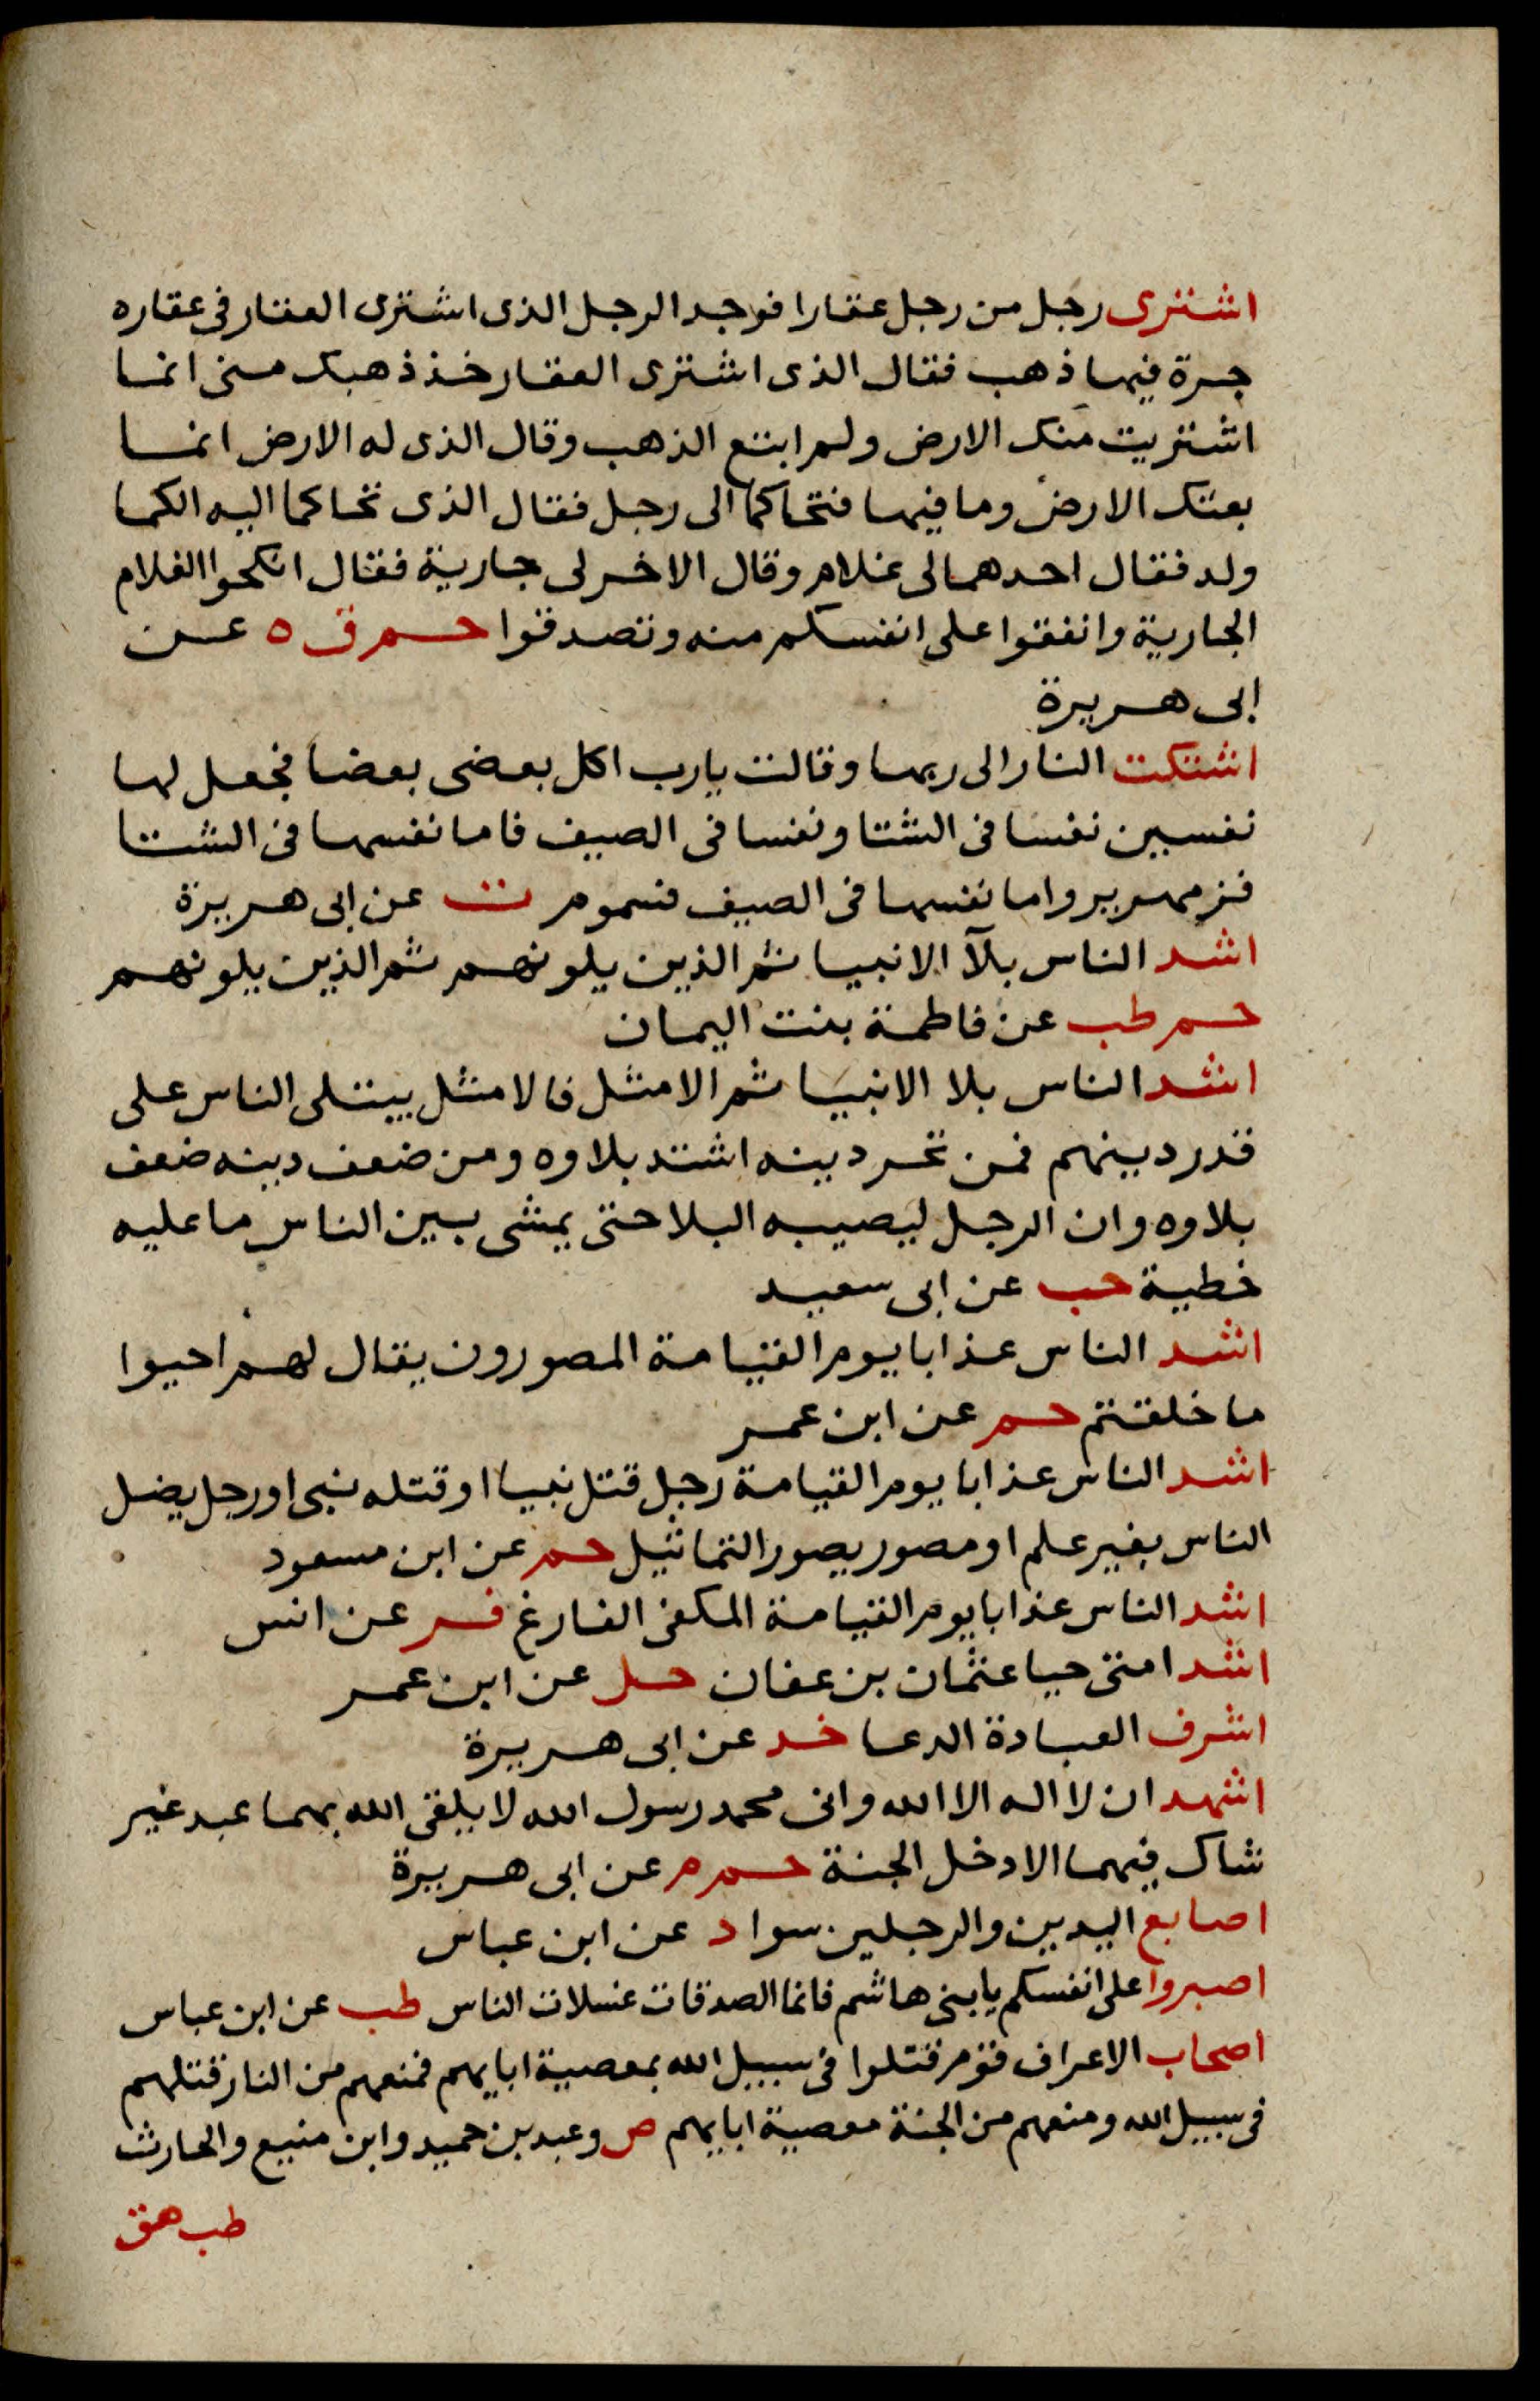 اشترى رجل من رجل عقارا فوجد الرجل الذى اشترى العقار فى عقاره
جرة فيها ذهب فقال الذى اشترى العقار خذ ذهبك منى انما
اشتريت منك الارض ولم ابتع الذهب وقال الذى له الارض انما
بعتك الارض وما فيها فتحاكما الى رجل فقال الذى تحاكما اليه الكما
ولد فقال احدهما لى غلام وقال الاخر لى جارية فقال انكحوا الغلام
الجارية وانفقوا على انفسكم منه وتصدقوا حم ق ه عن
ابى هريرة
اشتكت النار الى ربها وقالت يارب اكل بعضى بعضا فجعل لها
نفسين نفسا فى الشتا ونفسا فى الصيف فاما نفسها فى الشتا
فزمهرير واما نفسها فى الصيف فسموم ت عن ابى هريرة
اشد الناس بلآ الانبيا ثم الذين يلونهم ثم الذين يلونهم
حم طب عن فاطمة بنت اليمان
اشد الناس بلا الانبيا ثم الامثل فالامثل يبتلى الناس على
قدر دينهم فمن نحر دينه اشتد بلاوه ومن ضعف دينه ضعف
بلاوه وان الرجل ليصيبه البلا حتى يمشى بين الناس ما عليه
خطية حب عن ابى سعيد
اشد الناس عذابا يوم القيامة المصورون يقال لهم احيوا
ما خلقتم حم عن ابن عمر
اشد الناس عذابا يوم القيامة رجل قتل نبيا او قتله نبى او رجل يضل
الناس بغير علم او مصور يصور التماثيل حم عن ابن مسعود
اشد الناس عذابا يوم القيامة المكفى الفارغ فر عن انس
اشد امتى حيا عثمان بن عفان حل عن ابن عمر
اشرف العبادة الدعا خد عن ابى هريرة
اشهد ان لا اله الا الله وانى محمد رسول الله لا يلقى الله بهما عبد غير
شاك فيهما الا دخل الجنة حم م عن ابى هريرة
اصابع اليدين والرجلين سوا د عن ابن عباس
اصبروا على انفسكم يا بنى هاشم فانما الصدقات غسلات الناس طب عن ابن عباس
اصحاب الاعراف قوم قتلوا فى سبيل الله بمعصية ابايهم فمنعهم من النار قتلهم
فى سبيل الله ومنعهم من الجنة معصية ابايهم ص وعبد بن حميد وابن منيع والحارث
طب هق